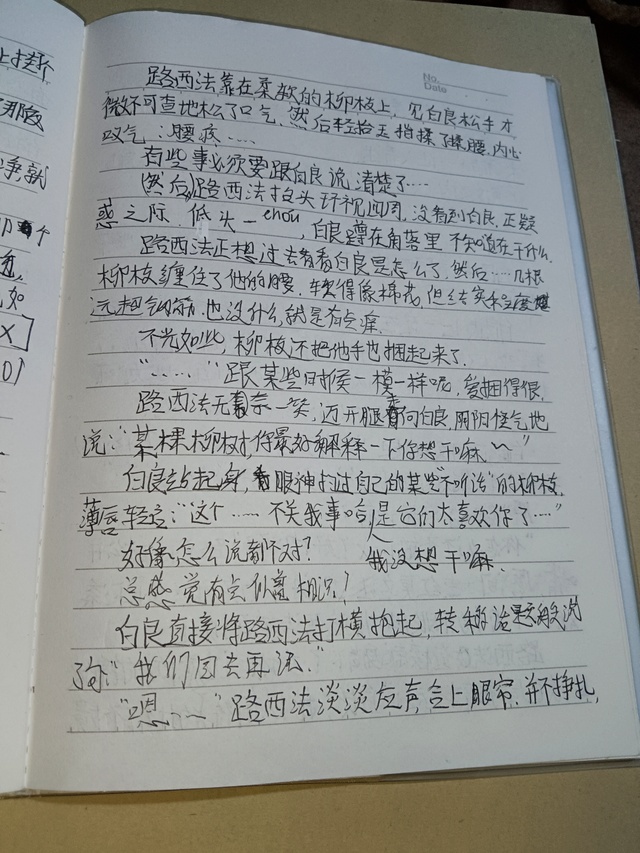 No.
Date
路西法靠在柔软的柳枝上，见白良松手才
微不可查地松了口气，然后轻抬玉指揉了揉腰，内心
叹气：腰疼……
有些事必须要跟白良说清楚了……
(然后)路西法抬头环视四周，没看到白良，正疑
惑之际，低头—emou，白良蹲在角落里不知道在干什么，
路西法正想过去看看白良是怎么了，然后……几根
柳枝缠住了他的腰，软得像棉花，但结实程度堪
远超钢筋，也没什么，就是有点痒，
不光如此，柳枝还把他手也捆起来了，
“……”跟某些时候一模一样呢，爱捆得很，
路西法无奈一笑，迈开腿走向白良，阴阳怪气地
说：“某棵柳树，你最好解释一下你想干嘛~”
白良站起身，眼神扫过自己的某些“不听话”的柳枝，
薄唇轻启：“这个……不关我事哈，是它们太喜欢你了……”
好像怎么说都不对？ 我没想干嘛，
总感觉有点似曾相识！
白良直接将路西法打横抱起，转移话题
了句“我们回去再话。”
“嗯……”路西法淡淡应声，合上眼帘，并不挣扎，
上挂个
那被
争就
个
如